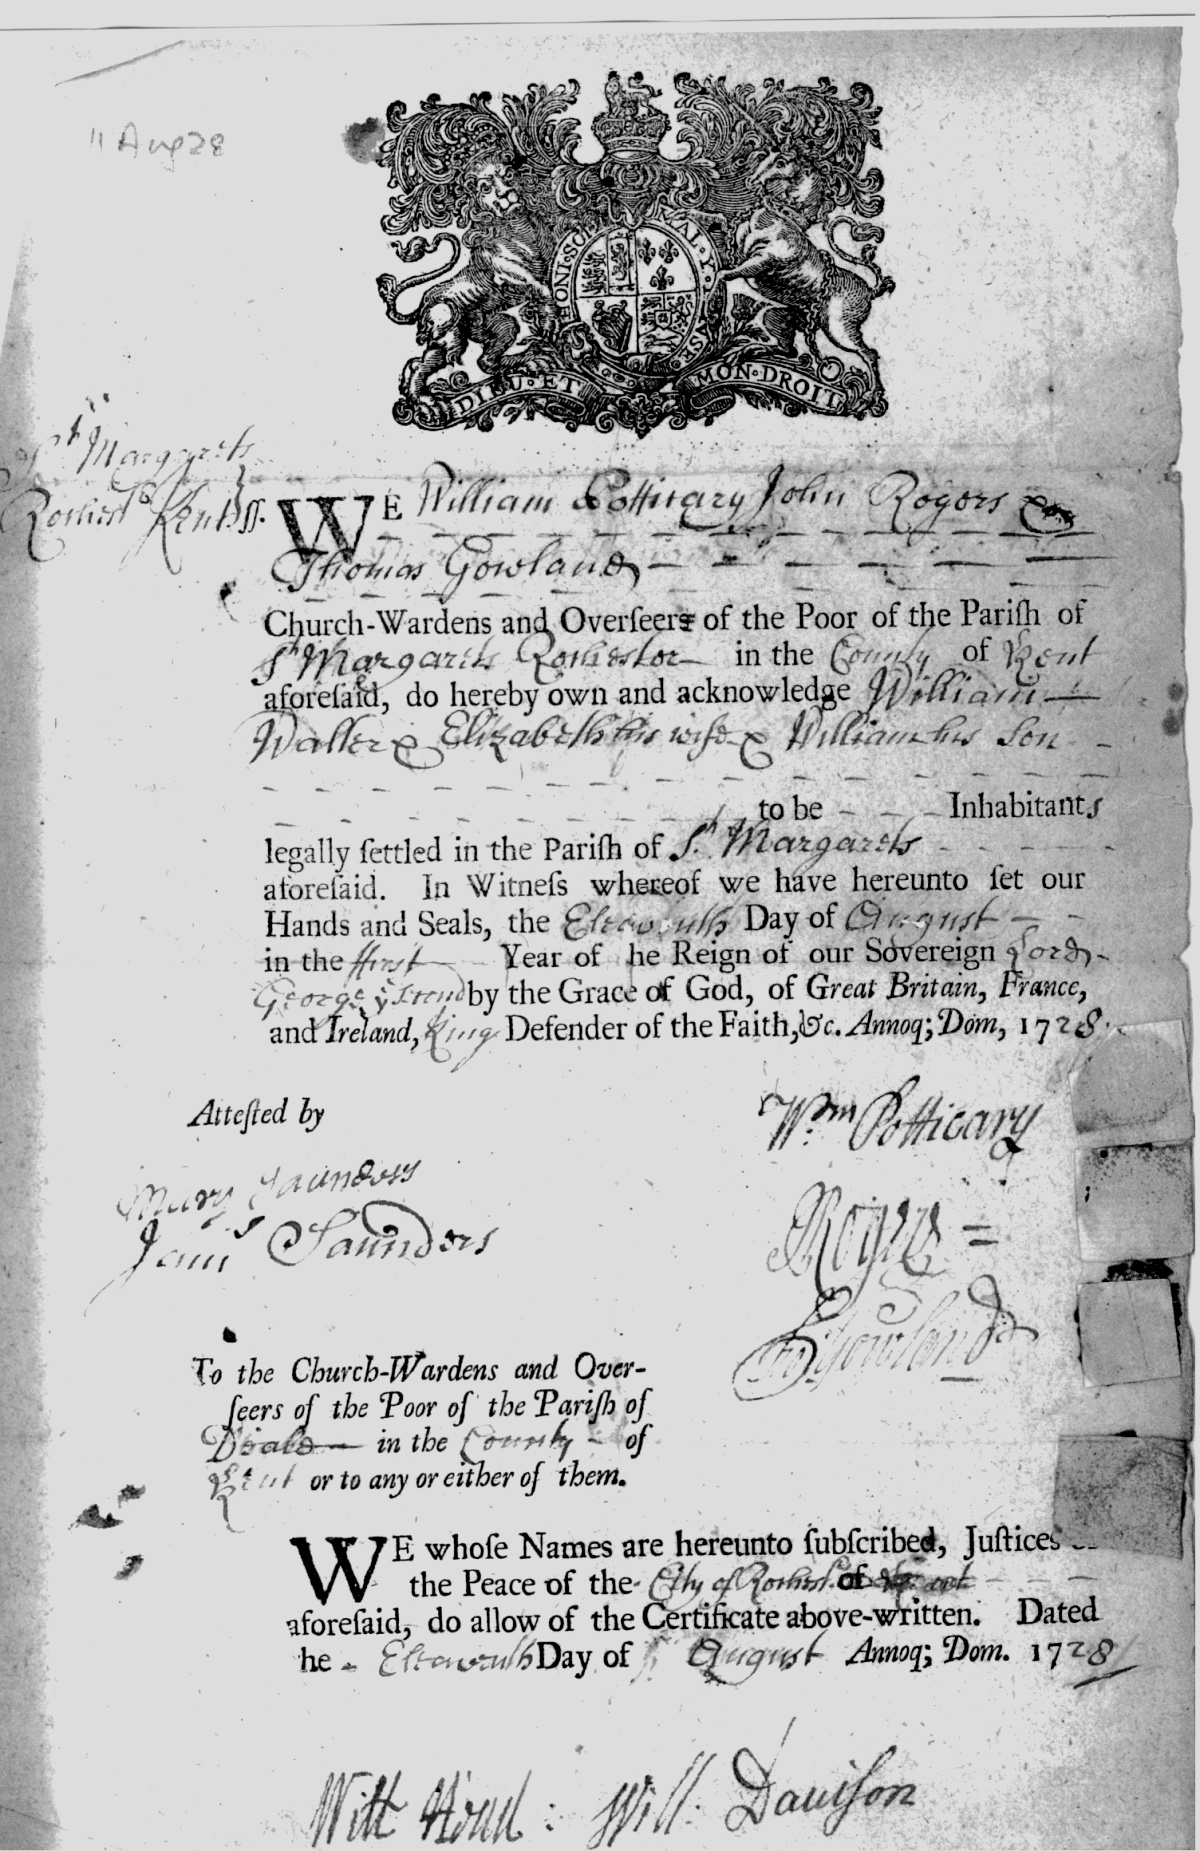 11 Aug 28
HONI·SOI MAL·Y· PENSE
DIEU·ET MON·DROIT
St Margarets
Rochestr Kent ſſ.
WE William Potticary John Rogers &
Thomas Gowland
Church-Wardens and Overſeers of the Poor of the Pariſh of
St Margarets Rochester in the County of Kent
aforeſaid, do hereby own and acknowledge William
Waller & Elizabeth his wife & William his Son
to be Inhabitants
legally ſettled in the Pariſh of St. Margarets
aforeſaid. In Witneſs whereof we have hereunto ſet our
Hands and Seals, the Eleaventh Day of August
in the ffirst Year of he Reign of our Sovereign Lord
George ye Second by the Grace of God, of Great Britain, France,
and Ireland, King Defender of the Faith, &c. Annoq; Dom, 1728.
Atteſted by
Wm Potticary
Mary Saunders
Jams Saunders
Rogers
Gowland
To the Church-Wardens and Over-
ſeers of the Poor of the Pariſh of
Deale in the County of
Kent or to any or either of them.
WE whoſe Names are hereunto ſubſcribed, Juſtices
the Peace of the City of Rochestr of Kent
aforeſaid, do allow of the Certificate above-written. Dated
he Eleaventh Day of August Annoq; Dom. 1728
Will: Daviſon